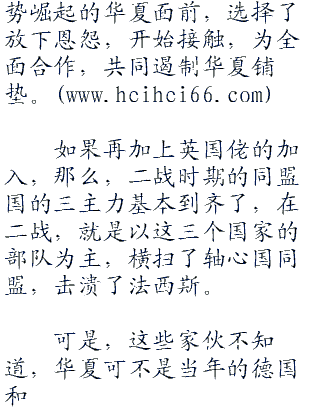 势崛起的华夏面前，选择了
放下恩怨，开始接触，为全
面合作，共同遏制华夏铺
垫。(www.hcihci66.com)
如果再加上英国佬的加
入，那么，二战时期的同盟
国的三主力基本到齐了，在
二战，就是以这三个国家的
部队为主，横扫了轴心国同
盟，击溃了法西斯。
可是，这些家伙不知
道，华夏可不是当年的德国
和